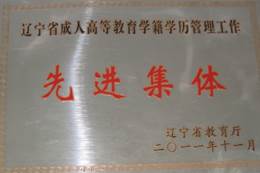 辽宁省成人高等教育学籍学历管理工作
先进集体
辽宁省教育厅
二〇一一年十一月